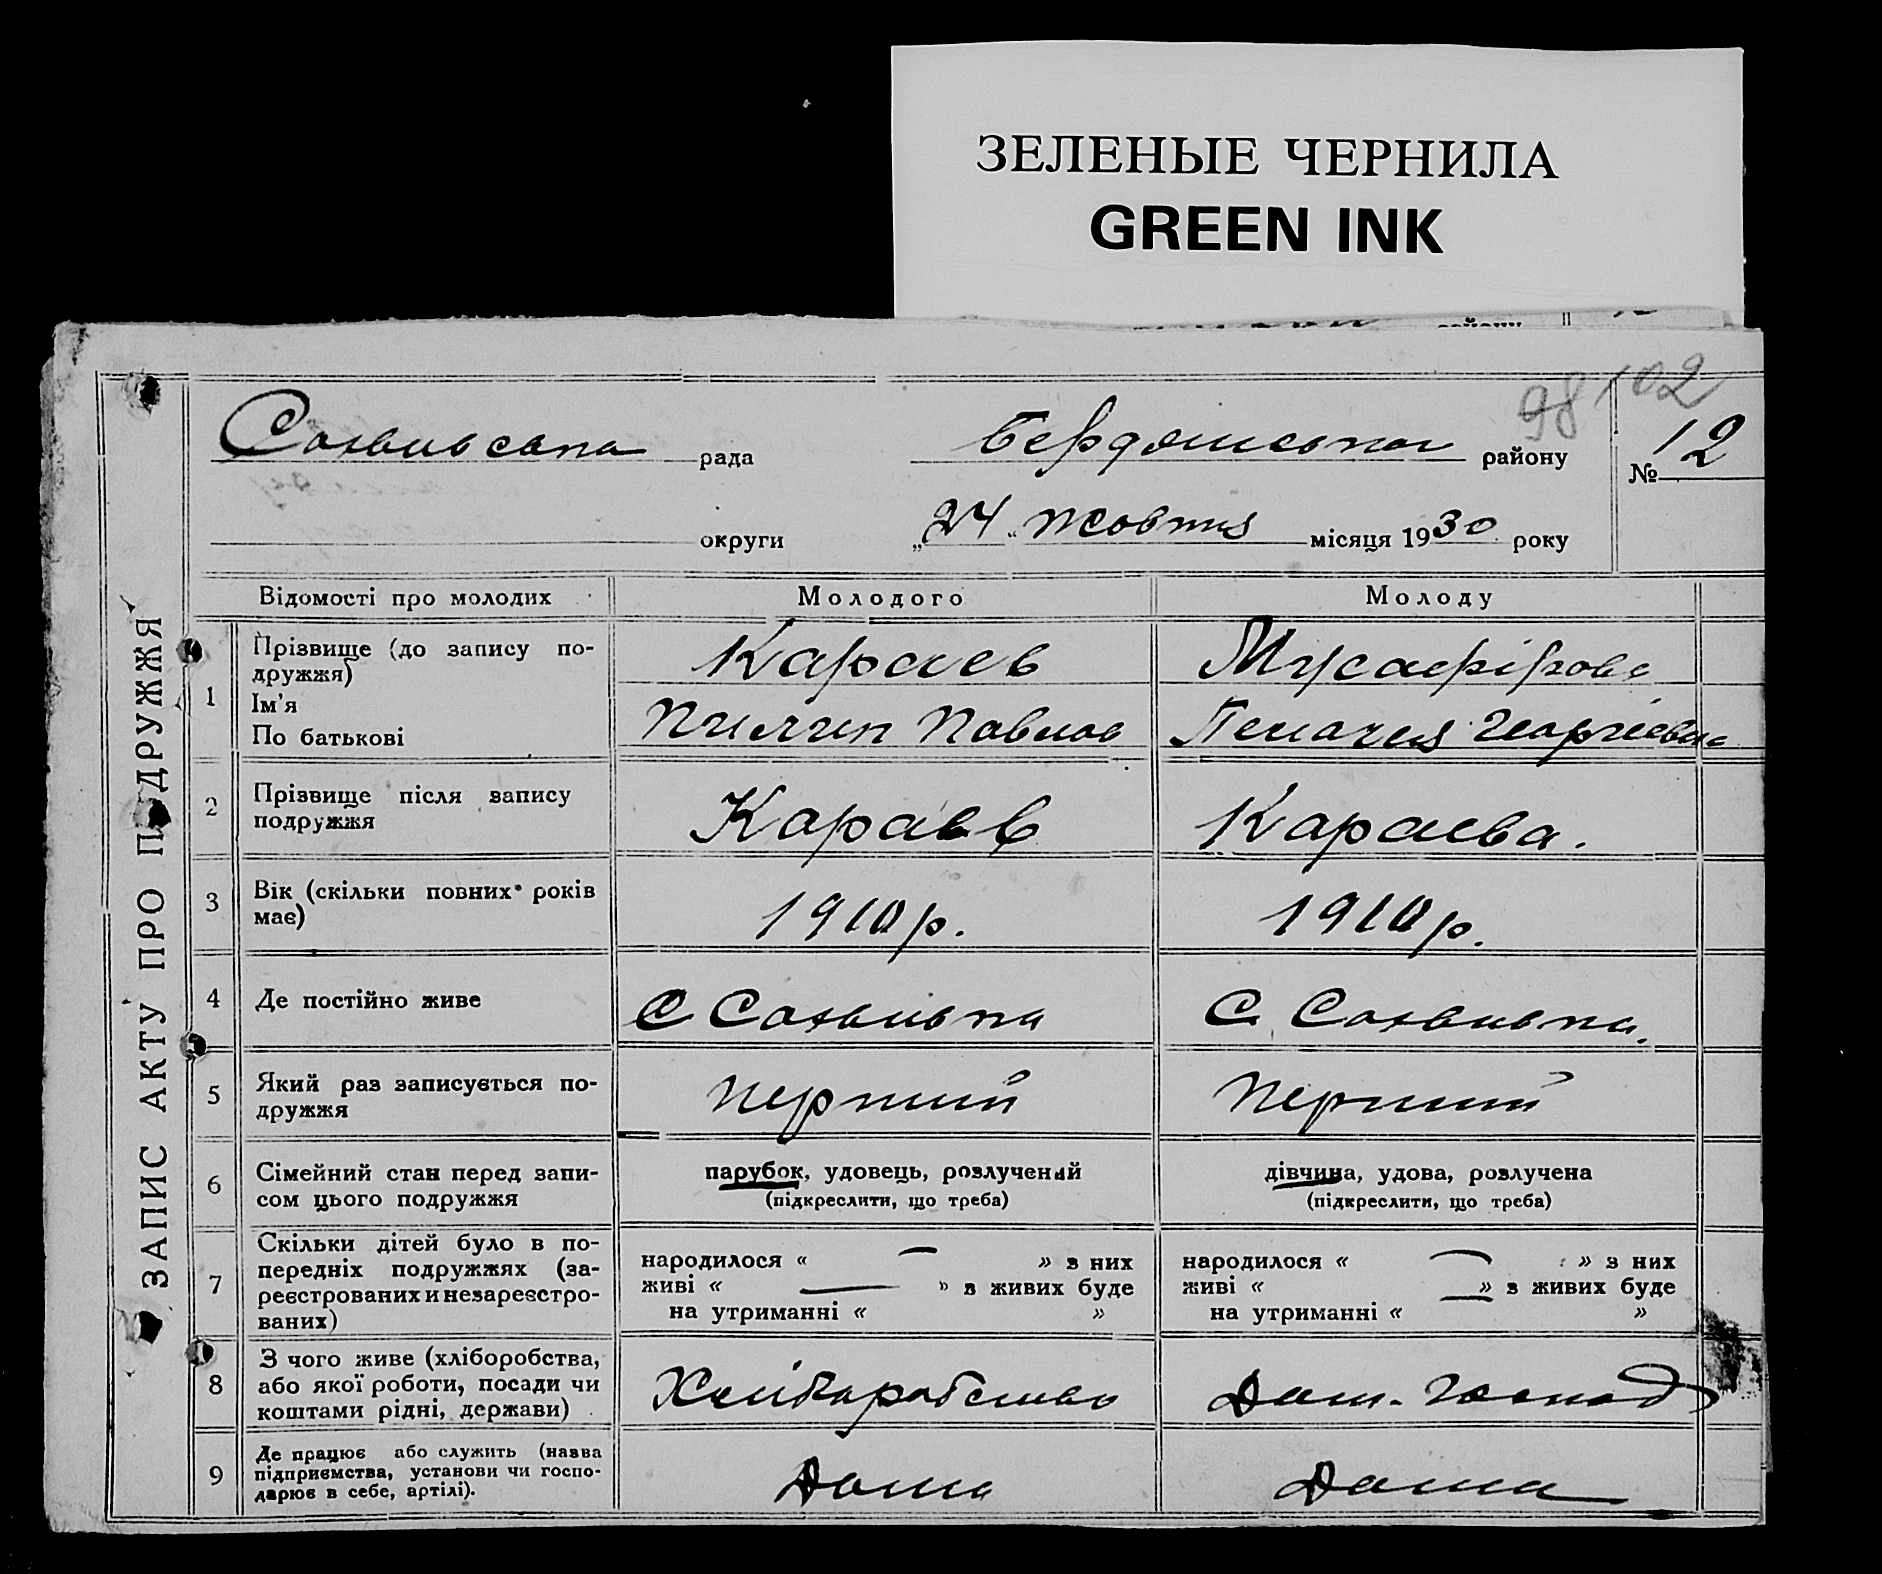 ЗЕЛЕНЫЕ ЧЕРНИЛА
GREEN INK
98 102
рада Бердянського району № 12
округи „24“ жовтня місяця 1930 року
ЗАПИС АКТУ ПРО ПОДРУЖЖЯ
Відомості про молодих Молодого Молоду
1 Прізвище (до запису по-
дружжя) Караєв Мусафірова
Ім’я
По батькові Пилип Павлов Георгієвна
2 Прізвище після запису
подружжя Караєв Караєва.
3 Вік (скільки повних років
має) 1910 р. 1910 р.
4 Де постійно живе С Софиевка С. Софиевка
5 Який раз записується по-
дружжя перший перший
6 Сімейний стан перед запи-
сом цього подружжя
парубок, удовець, розлучений
(підкреслити, що треба)
дівчина, удова, розлучена
(підкреслити, що треба)
7 Скільки дітей було в по-
передніх подружжях (за-
реєстрованих и незареєстро-
ваних)
народилося « — » з них
живі « — » з живих буде
на утриманні « »
народилося « — » з них
живі « — » з живих буде
на утриманні « »
8 З чого живе (хліборобства,
або якої роботи, посади чи
коштами рідні, держави) Хліборобство Дом. господ
9 Де працює або служить (назва
підприємства, установи чи госпо-
дарює в себе, артілі). Дома Дома